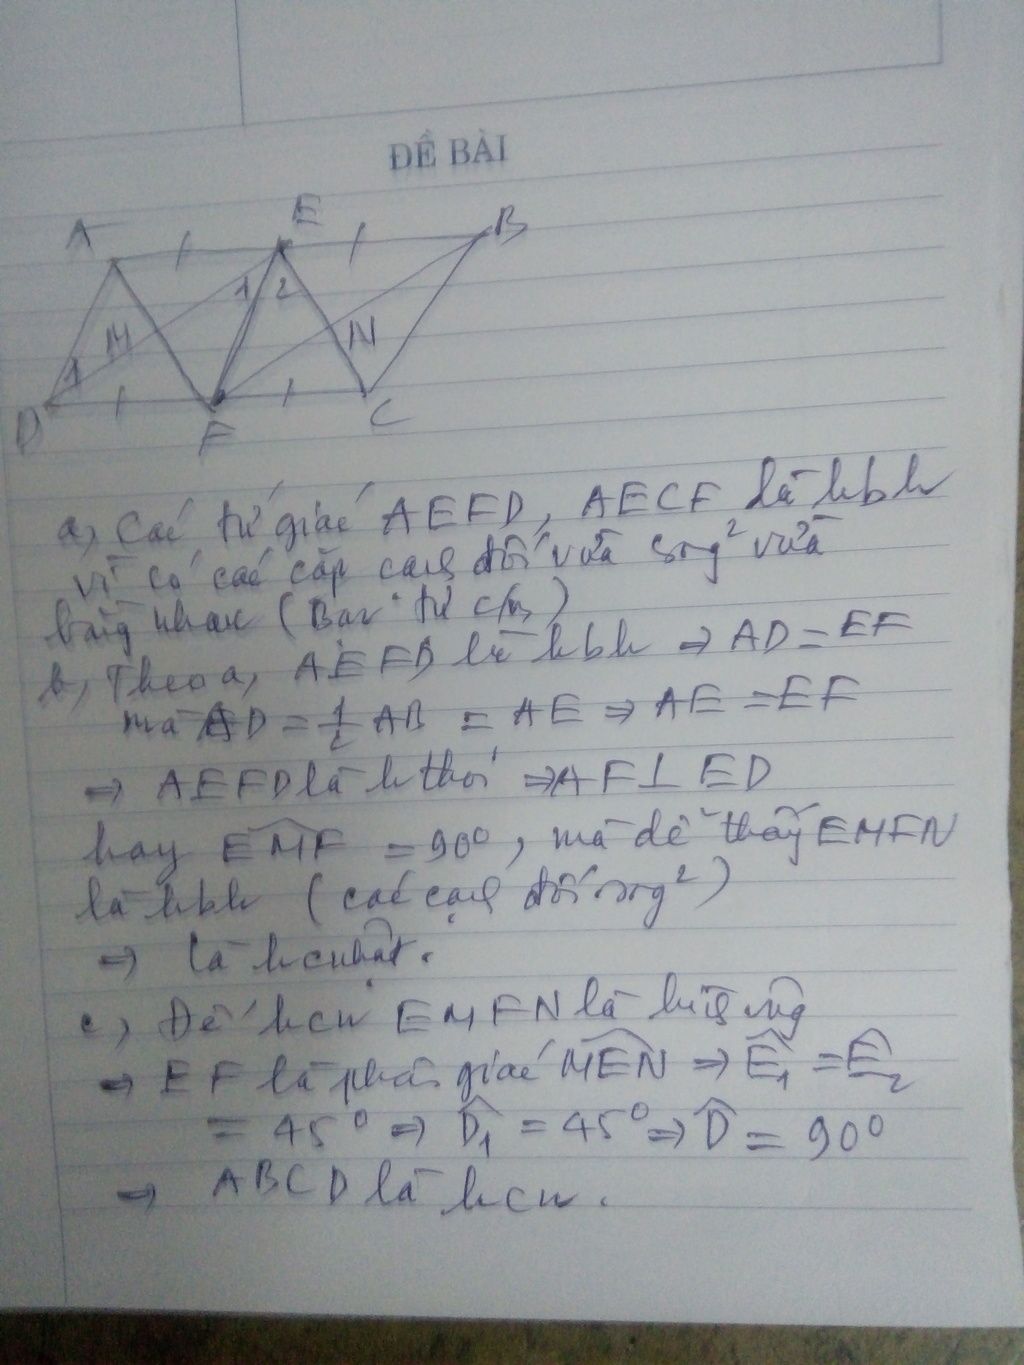 ĐỀ BÀI
A E B
1 2
M N
1
D F C
a, Các tứ giác AEFD, AECF là hbh
vì có các cặp cạnh đối vừa song² vừa
bằng nhau (Bạn tự c/m)
b, Theo a, AEFD là hbh ⇒ AD = EF
mà AD = 1/2 AB = AE ⇒ AE = EF
⇒ AEFD là h thoi ⇒ AF ⊥ ED
hay EMF = 90°, mà dễ thấy EMFN
là hbh (các cạnh đối song²)
⇒ là h c nhật.
c, Để hcn EMFN là h vuông
⇒ EF là phân giác MEN ⇒ Ê₁ = Ê₂
= 45° ⇒ D̂₁ = 45° ⇒ D̂ = 90°
⇒ ABCD là hcn.